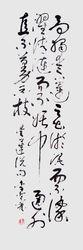 予獨愛蓮之出淤泥而不染
濯清漣而不妖中通外
直不蔓不枝
愛蓮說句